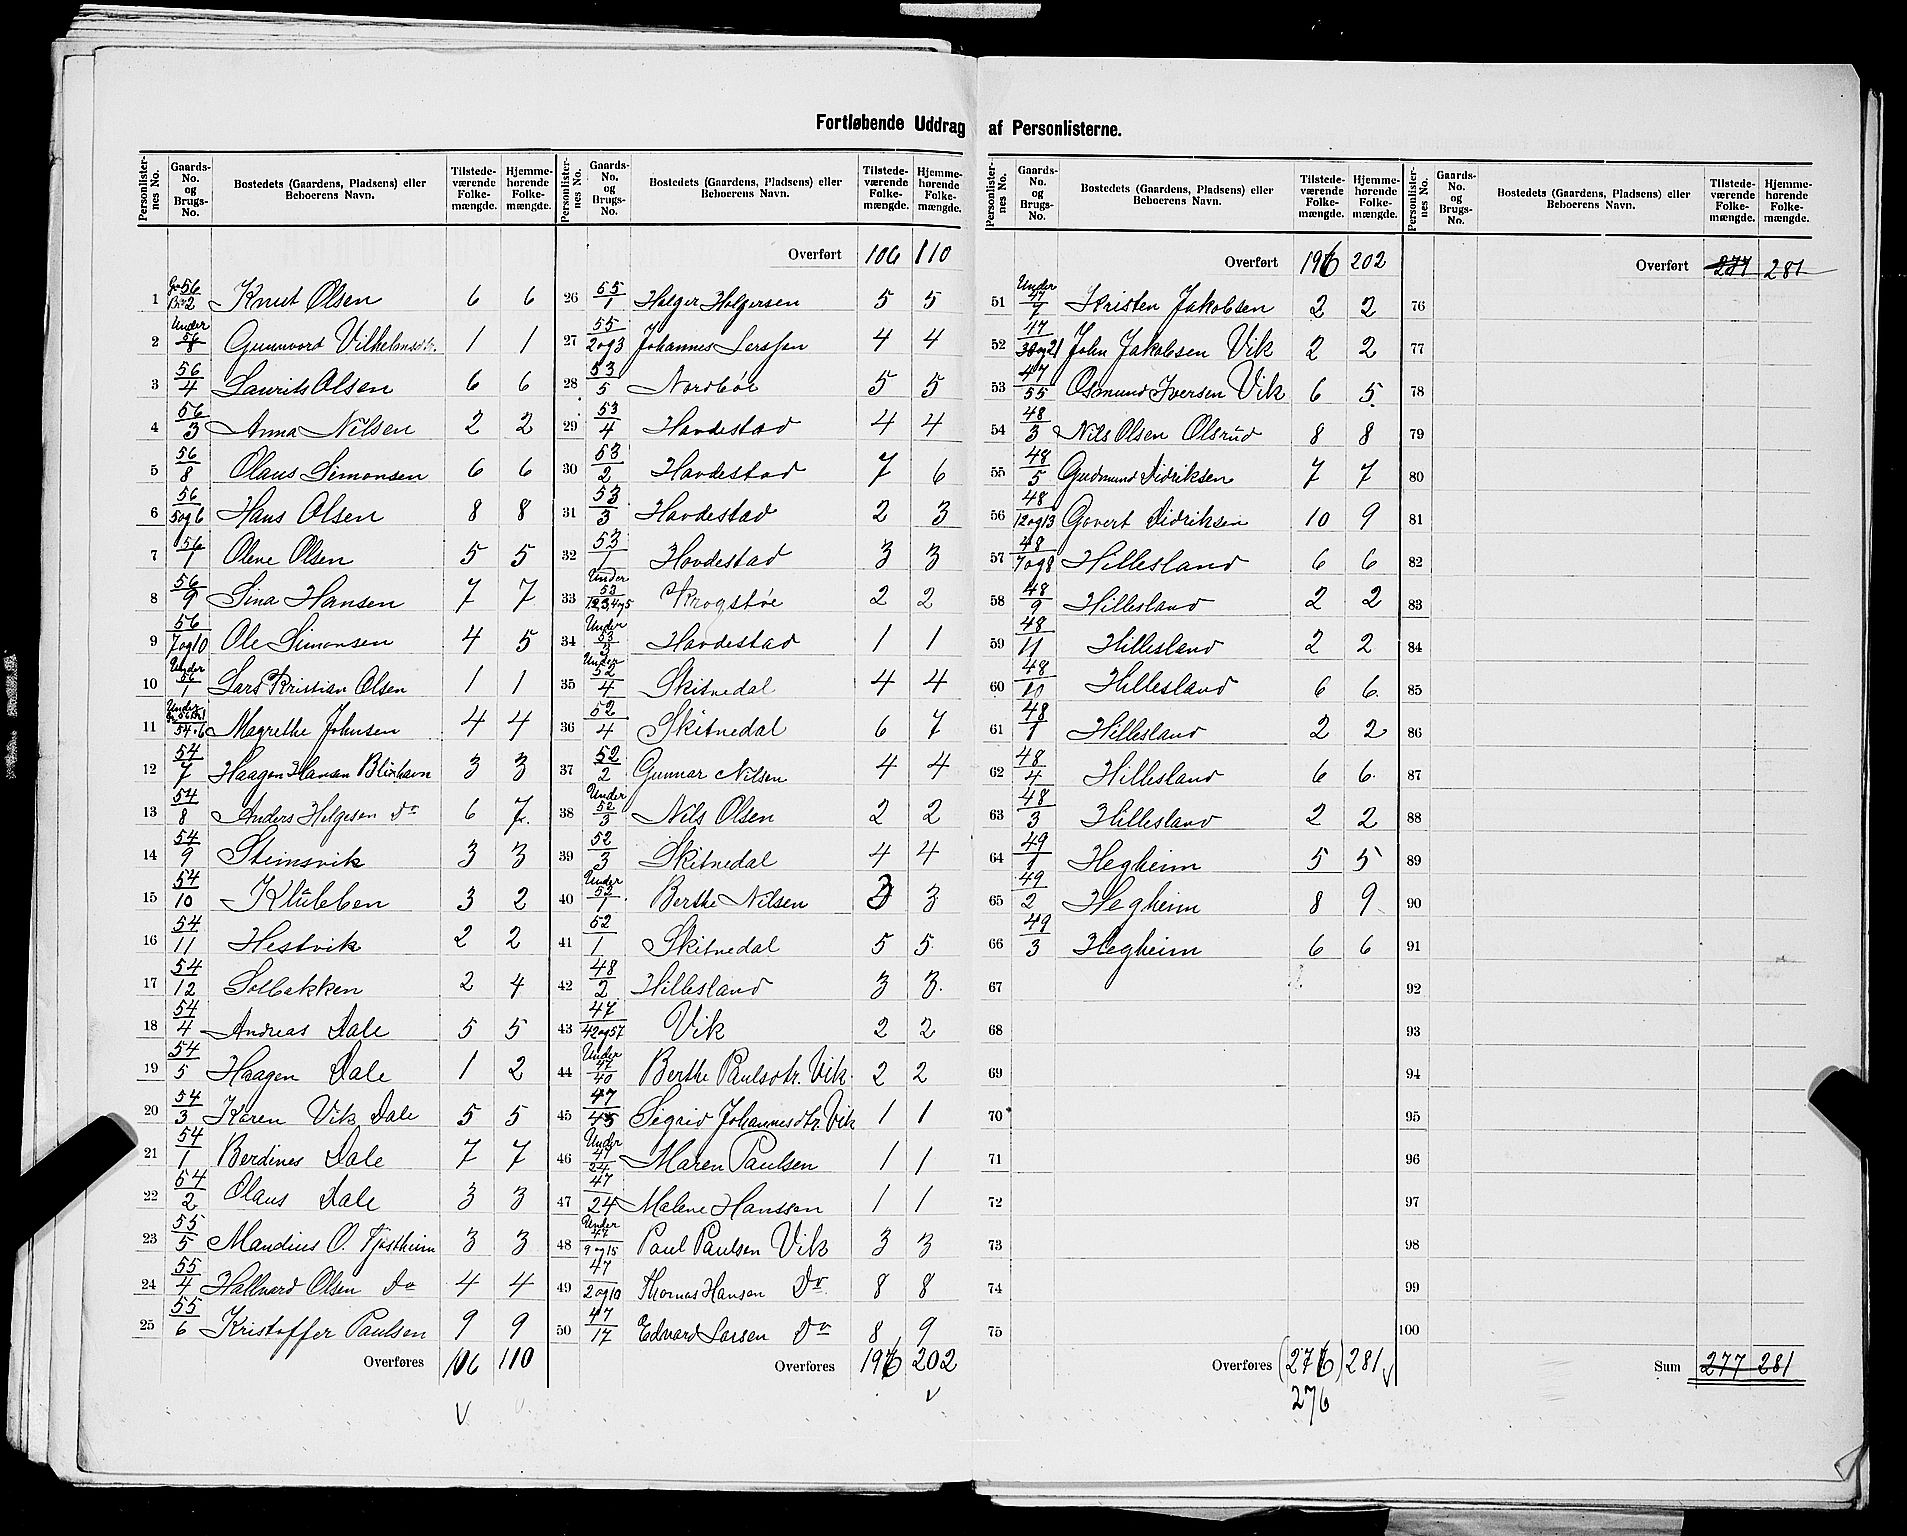 Fortløbende Uddrag af Personlisterne.
Personlisternes No. | Gaards-No. og Brugs-No. | Bostedets (Gaardens, Pladsens) eller Beboerens Navn. | Tilstedeværende Folkemængde. | Hjemmehørende Folkemængde.
1 Ga 56 Br 2 Knut Olsen 6 6
2 Under 56/8 Gunnvord Vilhelmsdtr. 1 1
3 56/4 Laurits Olsen 6 6
4 56/3 Anna Nilsen 2 2
5 56/8 Olaus Simonsen 6 6
6 56/5 og 6 Hans Olsen 8 8
7 56/1 Olene Olsen 5 5
8 56/9 Sina Hansen 7 7
9 56/7 og 10 Ole Simonsen 4 5
10 Under 56/1 Lars Kristian Olsen 1 1
11 Under 54.6 Magrethe Johnsen 4 4
12 54/7 Haagen Hansen Blixhavn 3 3
13 54/8 Anders Helgesen Do 6 7.
14 54/9 Steinsvik 3 3
15 54/10 Kluleben 3 2
16 54/11 Hestvik 2 2
17 54/12 Solbakken 2 4
18 54/4 Andreas Dale 5 5
19 54/5 Haagen Dale 1 2
20 54/3 Karen Vik Dale 5 5
21 54/1 Berdines Dale 7 7
22 54/2 Olaus Dale 3 3
23 55/5 Mandius O. Tjostheim 3 3
24 55/4 Hallvard Olsen Do 4 4
25 55/6 Kristoffer Paulsen 9 9
Overføres 106 110
Personlisternes No. | Gaards-No. og Brugs-No. | Bostedets (Gaardens, Pladsens) eller Beboerens Navn. | Tilstedeværende Folkemængde. | Hjemmehørende Folkemængde.
Overført 106 110
26 55/1 Holger Holgersen 5 5
27 55/2 og 3 Johannes Larssen 4 4
28 53/5 Nordbøe 5 5
29 53/4 Havdestad 4 4
30 53/2 Havdestad 7 6
31 53/3 Havdestad 2 3
32 53/1 Hovdestad 3 3
33 Under 53/1 2 3 4 og 5 Krogstøe 2 2
34 Under 53/3 Havdestad 1 1
35 Under 52/4 Skitnedal 4 4
36 52/4 Skitnedal 6 7
37 52/2 Gunnar Nilsen 4 4
38 Under 52/3 Nils Olsen 2 2
39 52/3 Skitnedal 4 4
40 Under 52/1 Berthe Nilsen 3 3
41 52/1 Skitnedal 5 5
42 48/2 Hillesland 3 3.
43 47/42 og 57 Vik 2 2
44 Under 47/40 Berthe Paulsdtr. Vik 2 2
45 47/45 Sigrid Johannesdtr. Vik 1 1
46 Under 47/24 Maren Paulsen 1 1
47 47/24 Malene Hanssen 1 1
48 Under 47/9 og 15 Paul Paulsen Vik 3 3
49 47/2 og 10 Thomas Hansen Do. 8 8
50 47/17 Edvard Larsen Do 8 9
Overføres 196 202
Personlisternes No. | Gaards-No. og Brugs-No. | Bostedets (Gaardens, Pladsens) eller Beboerens Navn. | Tilstedeværende Folkemængde. | Hjemmehørende Folkemængde.
Overført 196 202
51 Under 47/7 Kristen Jakobsen 2 2
52 47/38 og 21 John Jakobsen Vik 2 2
53 47/55 Osmund Iversen Vik 6 5.
54 48/3 Nils Olsen Olsrud 8 8
55 48/5 Gudmund Didriksen 7 7
56 48/12 og 13 Govert Didriksen 10 9
57 48/7 og 8 Hillesland 6 6
58 48/9 Hillesland 2 2
59 48/11 Hillesland 2 2
60 48/10 Hillesland 6 6.
61 48/1 Hillesland 2 2
62 48/4 Hillesland 6 6.
63 48/3 Hillesland 2 2
64 49/1 Hegheim 5 5
65 49/2 Hegheim 8 9
66 49/3 Hegheim 6 6
67
68
69
70
71
72
73
74
75
Overføres (276) 281
276
Personlisternes No. | Gaards-No. og Brugs-No. | Bostedets (Gaardens, Pladsens) eller Beboerens Navn. | Tilstedeværende Folkemængde. | Hjemmehørende Folkemængde.
Overført 277 281
76
77
78
79
80
81
82
83
84
85
86
87
88
89
90
91
92
93
94
95
96
97
98
99
100
Sum 277 281